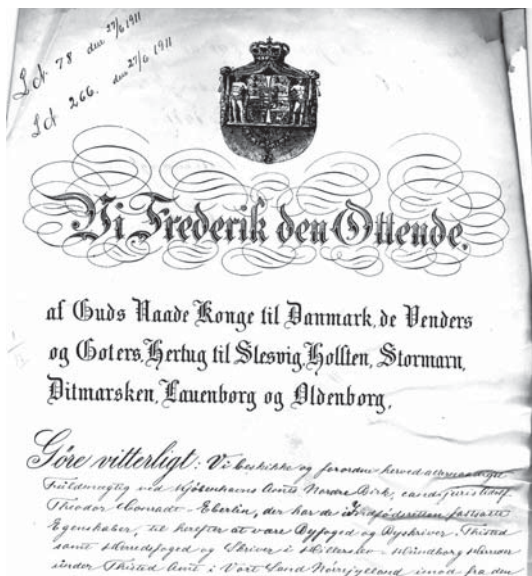 L № 78 den 27/6 1911
L № 266. den 27/6 1911
Vi Frederik den Ottende,
af Guds Naade Konge til Danmark, de Venders
og Goters, Hertug til Slesvig, Holsten, Stormarn,
Ditmarsken, Lauenborg og Oldenborg,
Göre vitterligt: Vi beskikke og forordne herved allernaadigst
Fuldmægtig ved Kjöbenhavns Amts Nordre Birk, cand. juris Adolf
Theodor Conradt-Eberlin, der har de i Indfödsretten fastsatte
Egenskaber, til herefter at være Byfoged og Byskriver i Thisted
samt Herredsfoged og Skriver i Hillerslev-Hundborg Herreder
under Thisted Amt i Vort Land Nörrejylland imod fra den